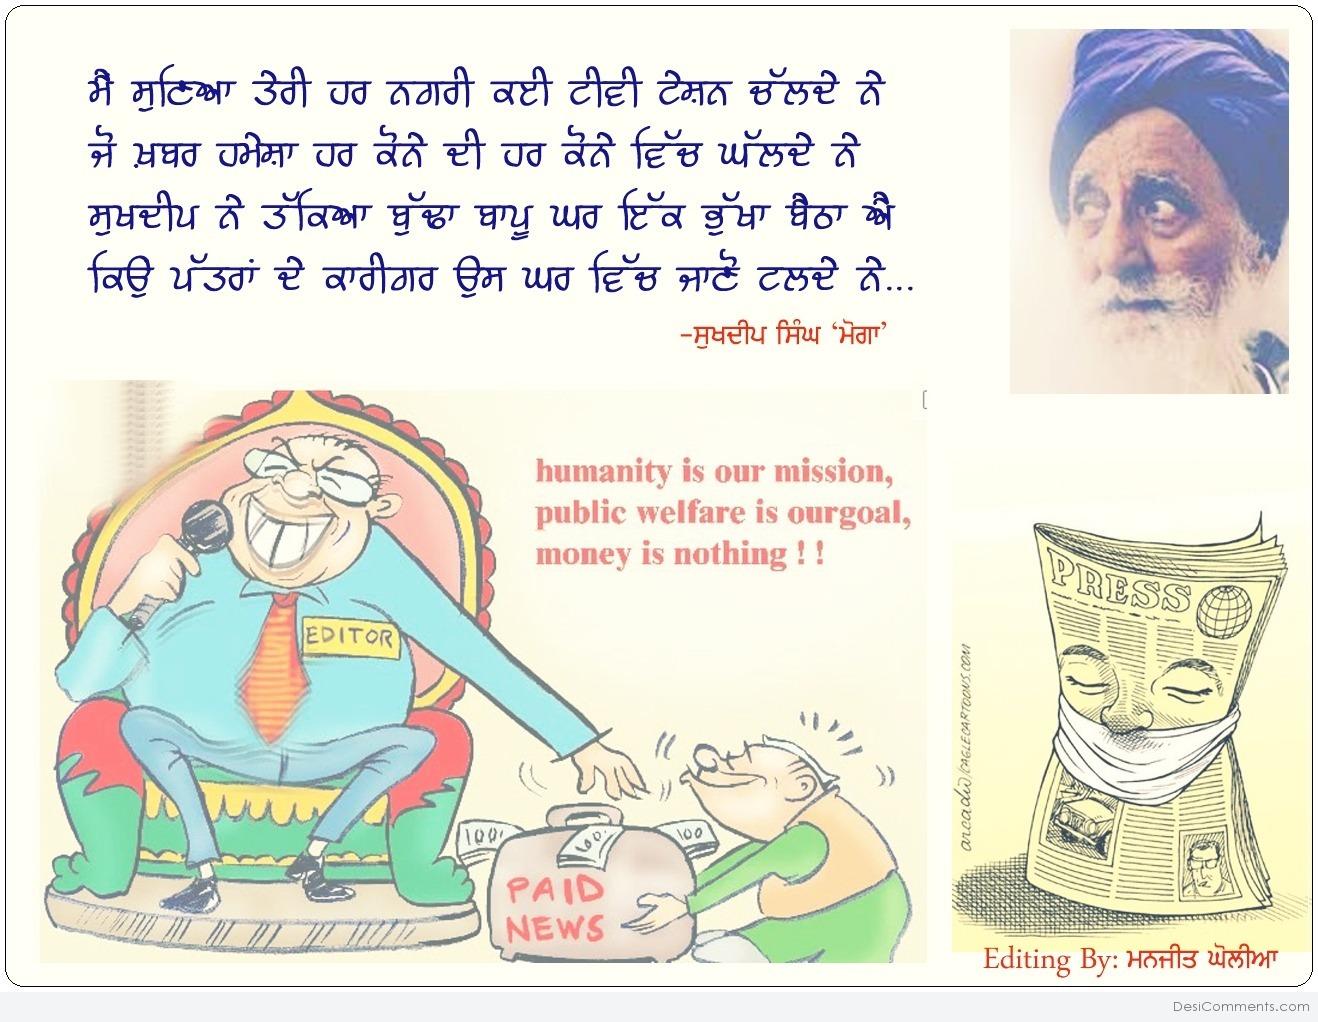 ਮੈਂ ਸੁਣਿਆ ਤੇਰੀ ਹਰ ਨਗਰੀ ਕਈ ਟੀਵੀ ਟੇਸ਼ਨ ਚੱਲਦੇ ਨੇ
ਜੋ ਖ਼ਬਰ ਹਮੇਸ਼ਾ ਹਰ ਕੋਨੇ ਦੀ ਹਰ ਕੋਨੇ ਵਿੱਚ ਘੱਲਦੇ ਨੇ
ਸੁਖਦੀਪ ਨੇ ਤੱਕਿਆ ਬੁੱਢਾ ਬਾਪੂ ਘਰ ਇੱਕ ਭੁੱਖਾ ਬੈਠਾ ਐ
ਕਿਉਂ ਪੱਤਰਾਂ ਦੇ ਕਾਰੀਗਰ ਉਸ ਘਰ ਵਿੱਚ ਜਾਣੋ ਟਲਦੇ ਨੇ...
-ਸੁਖਦੀਪ ਸਿੰਘ ‘ਮੋਗਾ’
humanity is our mission,
public welfare is ourgoal,
money is nothing ! !
EDITOR
100
100
100
PAID
NEWS
PRESS
arcadio/CAGLECARTOONS.COM
Editing By: ਮਨਜੀਤ ਘੋਲੀਆ
DesiComments.com